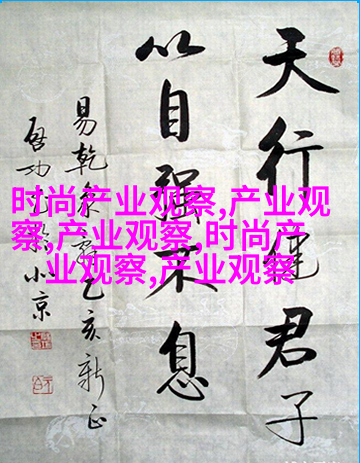 天行健君子
以自強不息
易乾乙亥新正
啟功京
时尚产业观察,产业观
察,产业观察,时尚产
业观察,产业观察